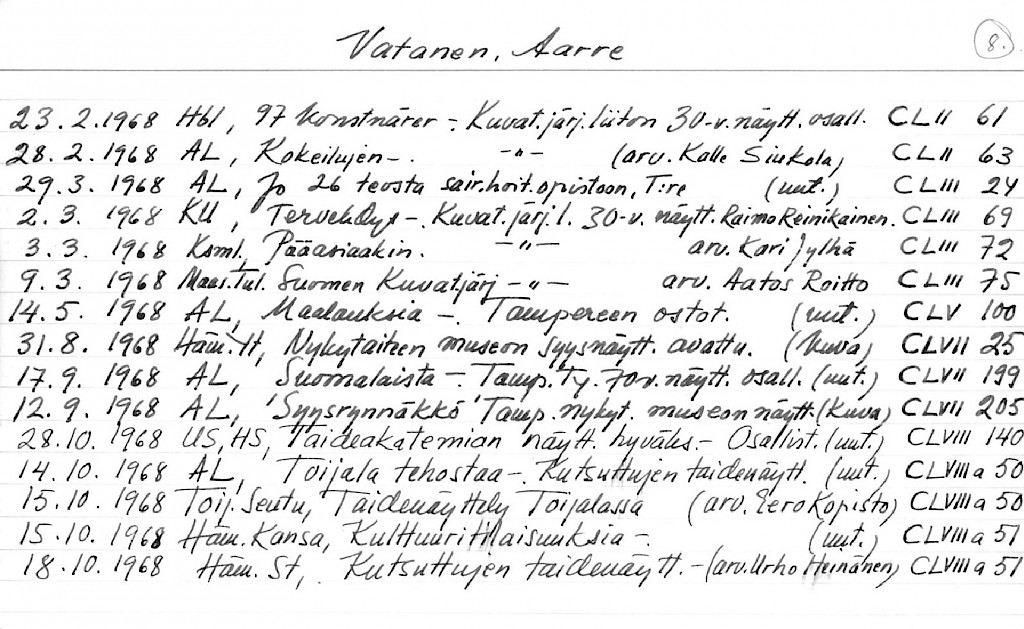 Vatanen, Aarre
8.
23.2.1968 Hbl, 97 konstnärer -. Kuvat.järj.liiton 30-v.näytt. osall. CLII 61
28.2.1968 AL, Kokeilujen -. -"- (arv. Kalle Siukola) CLII 63
29.3.1968 AL, Jo 26 teosta sair.hoit.opistoon, T:re (uut.) CLIII 24
2.3. 1968 KU, Tervehdys -. Kuvat.järj.l. 30-v. näytt. Raimo Reinikainen. CLIII 69
3.3. 1968 Ksml, Pääasiaakin. -"- arv. Kari Jylhä CLIII 72
9.3. 1968 Maas.Tul. Suomen Kuvatjärj -"- arv. Aatos Roitto CLIII 75
14.5. 1968 AL, Maalauksia -. Tampereen ostot. (uut.) CLV 100
31.8. 1968 Häm.YH, Nykytaiteen museon syysnäytt. avattu. (kuva) CLVII 25
17.9. 1968 AL, Suomalaista -. Tamp.Ty. 70v.näytt. osall. (uut.) CLVII 199
12.9. 1968 AL, 'Syysrynnäkkö' Tamp. nykyt. museon näytt. (kuva) CLVII 205
28.10. 1968 US, HS, Taideakatemian näytt. hyväks.- Osallist. (uut.) CLVIII 140
14.10. 1968 AL, Toijala tehostaa -. Kutsuttujen taidenäytt. (uut.) CLVIII a 50
15.10. 1968 Toij. Seutu, Taidenäyttely Toijalassa (arv. Eero Kopisto) CLVIII a 50
15.10. 1968 Häm. Kansa, Kulttuuritilaisuuksia -. (uut.) CLVIII a 51
18.10. 1968 Häm. St, Kutsuttujen taidenäytt. - (arv. Urho Heinänen) CLVIII a 51